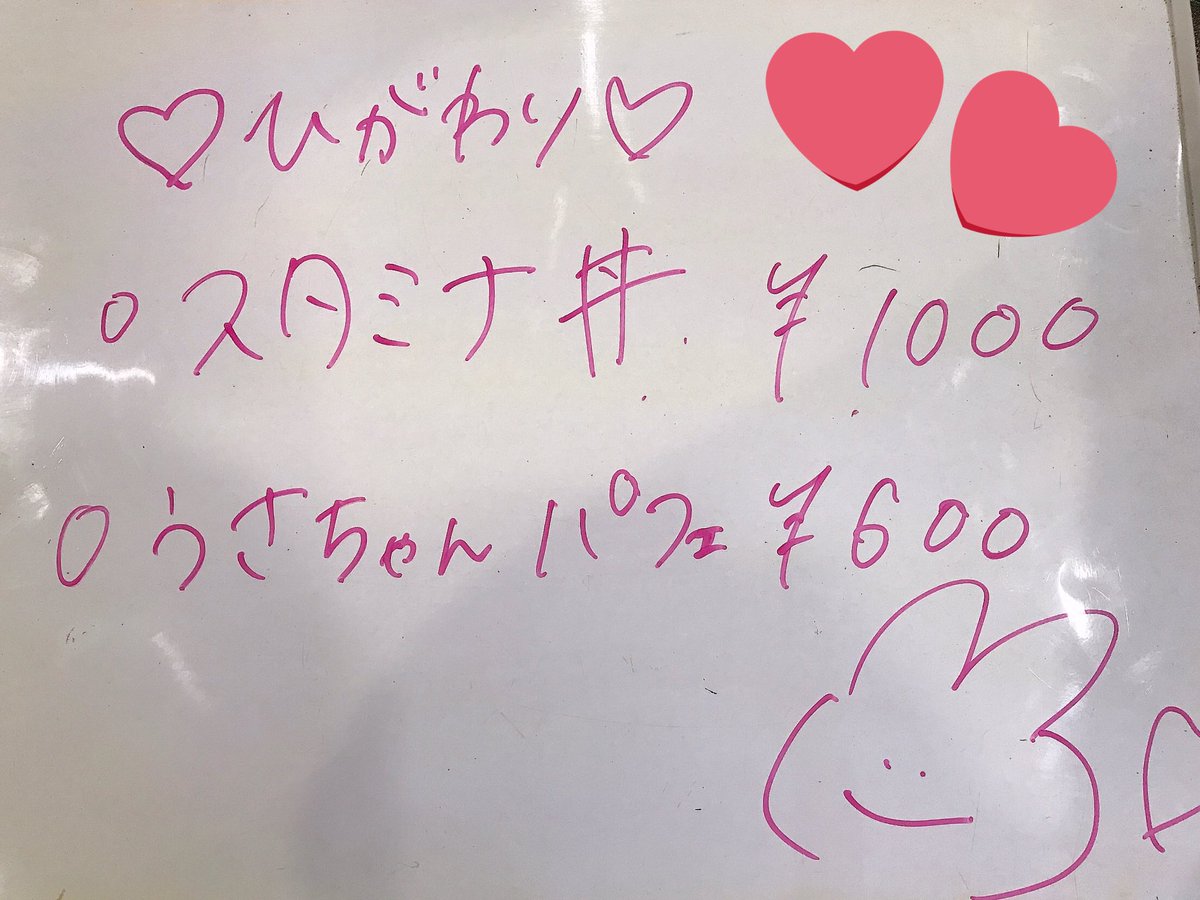 ♡ひがわり♡
○スタミナ丼 ¥1000
○うさちゃんパフェ ¥600